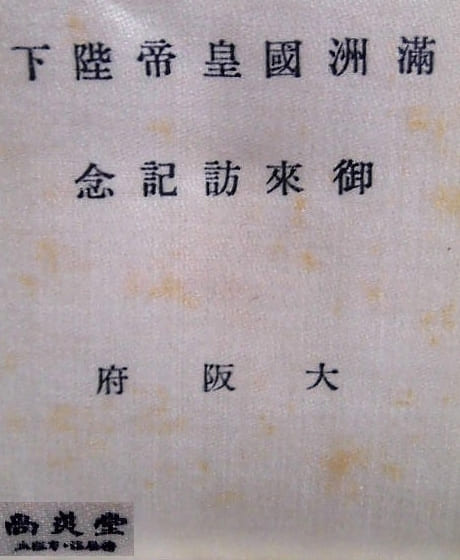 滿洲國皇帝陛下
御來訪記念
大阪府
尚美堂